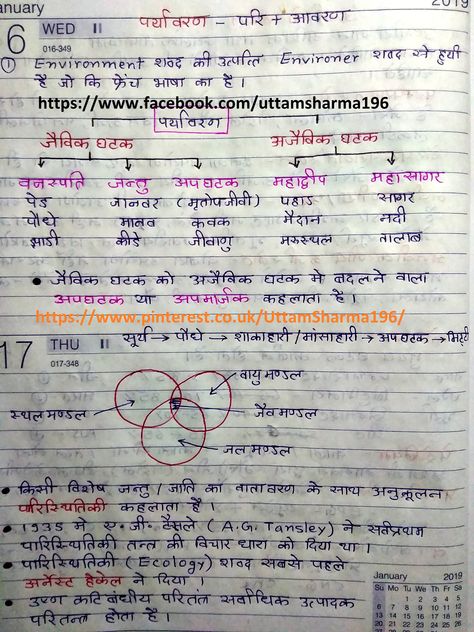 anuary
2019
6 WED II
016-349
पर्यावरण - परि + आवरण
① Environment शब्द की उत्पत्ति Environer शब्द से हुयी
है जो कि फ्रेंच भाषा का है।
https://www.facebook.com/uttamsharma196
पर्यावरण
जैविक घटक अजैविक घटक
वनस्पति जन्तु अपघटक महाद्वीप महासागर
पेड़ जानवर (मृतोपजीवी) पहाड़ सागर
पौधे मानव कवक मैदान नदी
झाड़ी कीड़े जीवाणु मरुस्थल तालाब
• जैविक घटक को अजैविक घटक मे बदलने वाला
अपघटक या अपमार्जक कहलाता है।
https://www.pinterest.co.uk/UttamSharma196/
17 THU II
017-348
सूर्य → पौधे → शाकाहारी/मांसाहारी → अपघटक → मिट्टी
वायु मण्डल
स्थल मण्डल
जैव मण्डल
जल मण्डल
• किसी विशेष जन्तु / जाति का वातावरण के साथ अनुकूलन
पारिस्थितिकी कहलाता है।
• 1935 मे ए. जी. टैंसले (A.G. Tansley) ने सर्वप्रथम
पारिस्थितिकी तन्त की विचार धारा को दिया था।
• पारिस्थितिकी (Ecology) शब्द सबसे पहले
अर्नेस्ट हैकल ने दिया।
• उष्ण कटिबंधीय परितंत सर्वाधिक उत्पादक
परितन्त होता है।
January 2019
Su M Tu W Th F Sa